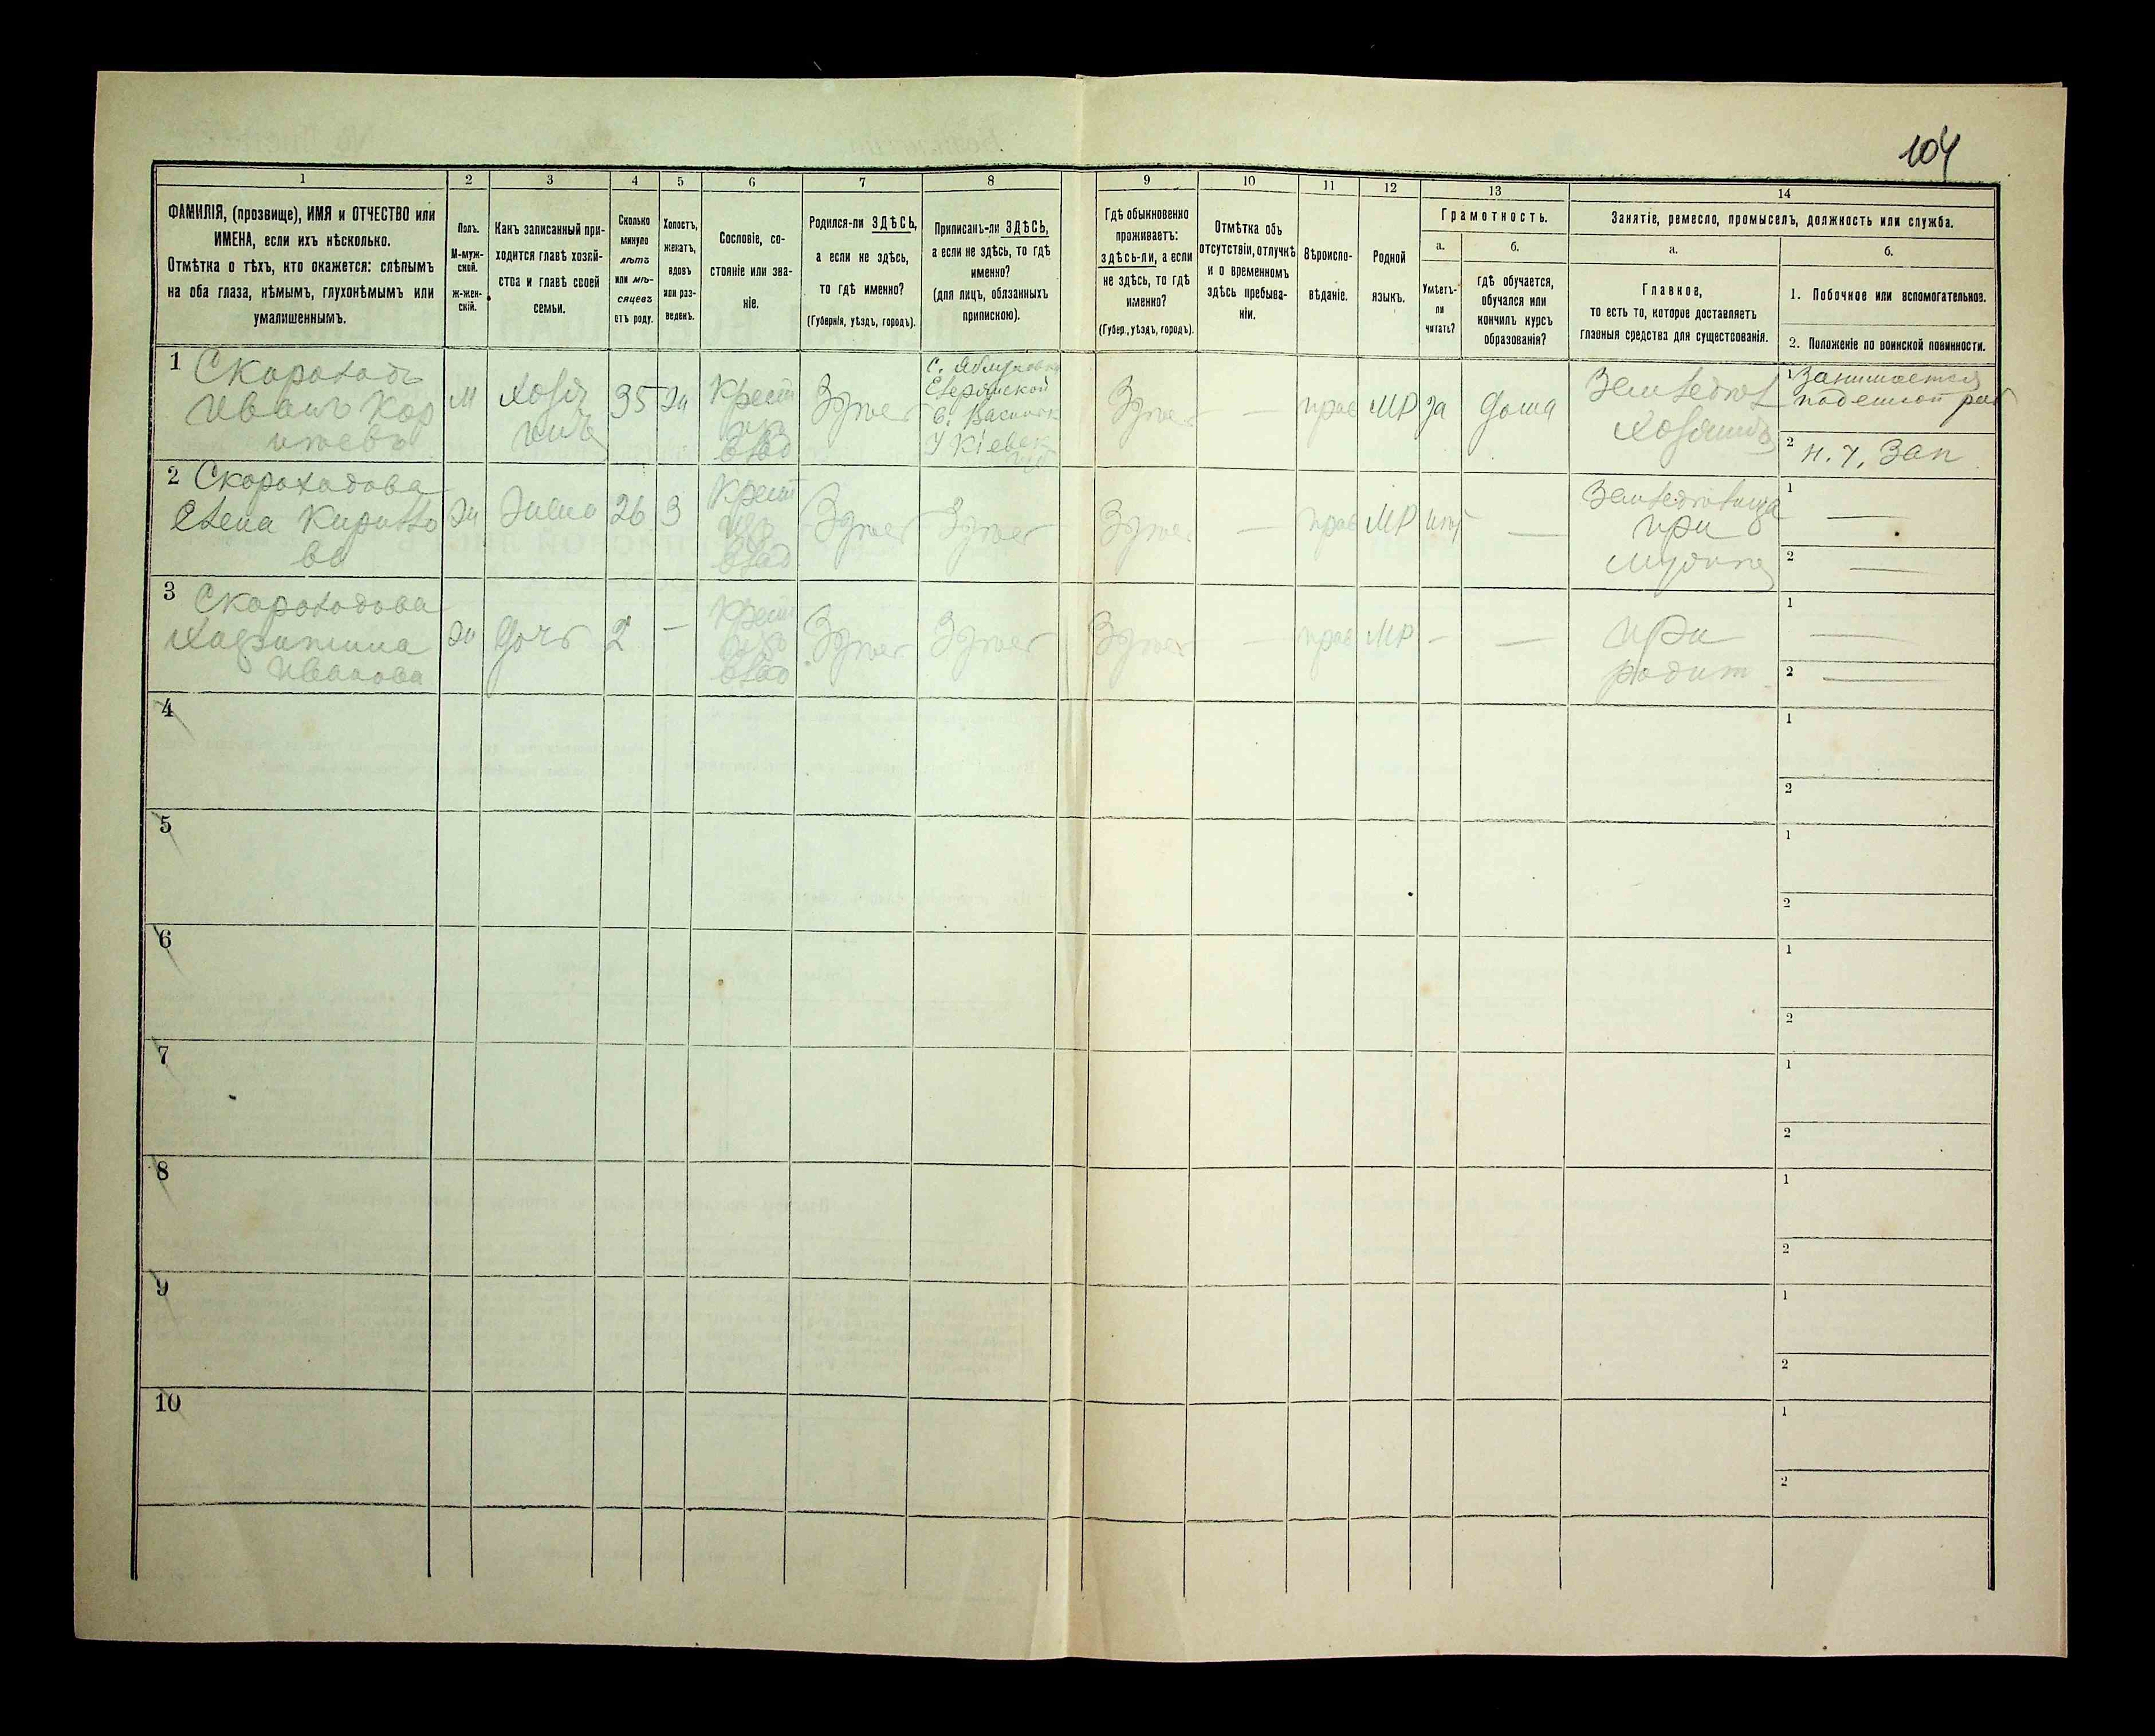 104
1 2 3 4 5 6 7 8 9 10 11 12 13 14
ФАМИЛІЯ, (прозвище), ИМЯ и ОТЧЕСТВО или
ИМЕНА, если ихъ нѣсколько.
Отмѣтка о тѣхъ, кто окажется: слѣпымъ
на оба глаза, нѣмымъ, глухонѣмымъ или
умалишеннымъ.
Полъ.
М-муж-
ской.
ж-жен-
скій.
Какъ записанный при-
ходится главѣ хозяй-
ства и главѣ своей
семьи.
Сколько
минуло
лѣтъ
или мѣ-
сяцевъ
отъ роду.
Холостъ,
женатъ,
вдовъ
или раз-
веденъ.
Сословіе, со-
стояніе или зва-
ніе.
Родился-ли ЗДѢСЬ,
а если не здѣсь,
то гдѣ именно?
(Губернія, уѣздъ, городъ).
Приписанъ-ли ЗДѢСЬ,
а если не здѣсь, то гдѣ
именно?
(для лицъ, обязанныхъ
припискою).
Гдѣ обыкновенно
проживаетъ:
здѣсь-ли, а если
не здѣсь, то гдѣ
именно?
(Губер., уѣздъ, городъ).
Отмѣтка объ
отсутствіи, отлучкѣ
и о временномъ
здѣсь пребыва-
ніи.
Вѣроиспо-
вѣданіе.
Родной
языкъ.
Грамотность.
а.
Умѣетъ-
ли
читать?
б.
гдѣ обучается,
обучался или
кончилъ курсъ
образованія?
Занятіе, ремесло, промыселъ, должность или служба.
а.
Главное,
то есть то, которое доставляетъ
главныя средства для существованія.
б.
1. Побочное или вспомогательное.
2. Положеніе по воинской повинности.
1 Скороходъ
Иванъ Кор
нѣевъ
М
Хозя
инъ
35
Ж
Крест
изъ
влад
Здѣсь
У Кіевск
губ
Здѣсь
—
прав
МР
да
дома
Земледѣл
Хозяинъ
1 Занимается
поденной раб
2 н. ч. Зап
2 Скороходова
Елена Кирилло
ва
Ж
Жена
26
З
Крест
изъ
влад
Здѣсь
Здѣсь
Здѣсь
—
прав
МР
нѣт
—
Земледѣлица
при
мужѣ
1 —
2 —
3 Скороходова
Харитина
Иванова
Ж
Дочь
2
—
Крест
изъ
влад
Здѣсь
Здѣсь
Здѣсь
—
прав
МР
—
—
при
родит
1 —
2 —
4
1
2
5
1
2
6
1
2
7
1
2
8
1
2
9
1
2
10
1
2